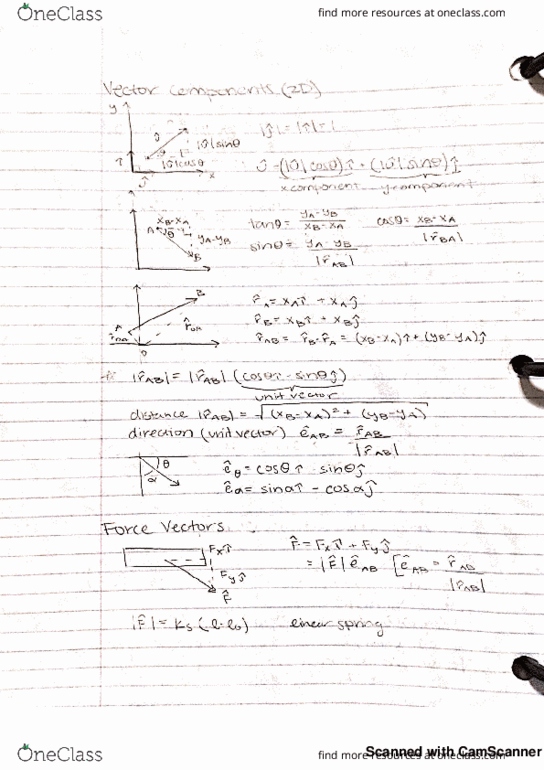 OneClass
find more resources at oneclass.com
Vector Components (2D)
y
|ĵ| = |î| = 1
|v̂|sinθ
|v̂|cosθ
x
(|v̂|cosθ)î + (|v̂|sinθ)ĵ
x component y-component
xB-xA
A
θ
yA-yB
B
tanθ = yA-yB / xB-xA
cosθ = xB-xA / |r̂BA|
sinθ = yA-yB / |r̂AB|
B
A
r̂OA
O
r̂A = xAî + xAĵ
r̂B = xBî + xBĵ
r̂AB = r̂B-r̂A = (xB-xA)î + (yB-yA)ĵ
|r̂AB| = |r̂AB| (cosθî - sinθĵ)
unit vector
distance |r̂AB| = √(xB-xA)² + (yB-yA)
direction (unit vector) êAB = r̂AB / |r̂AB|
θ
α
êθ = cosθî - sinθĵ
êα = sinαî - cosαĵ
Force Vectors
Fxî
Fyĵ
F̂
F̂ = Fxî + Fyĵ
= |F̂| êAB [êAB = r̂AB / |r̂AB|
|F̂| = Ks (l-l₀) linear spring
OneClass
find more resources at oneclass.com
Scanned with CamScanner